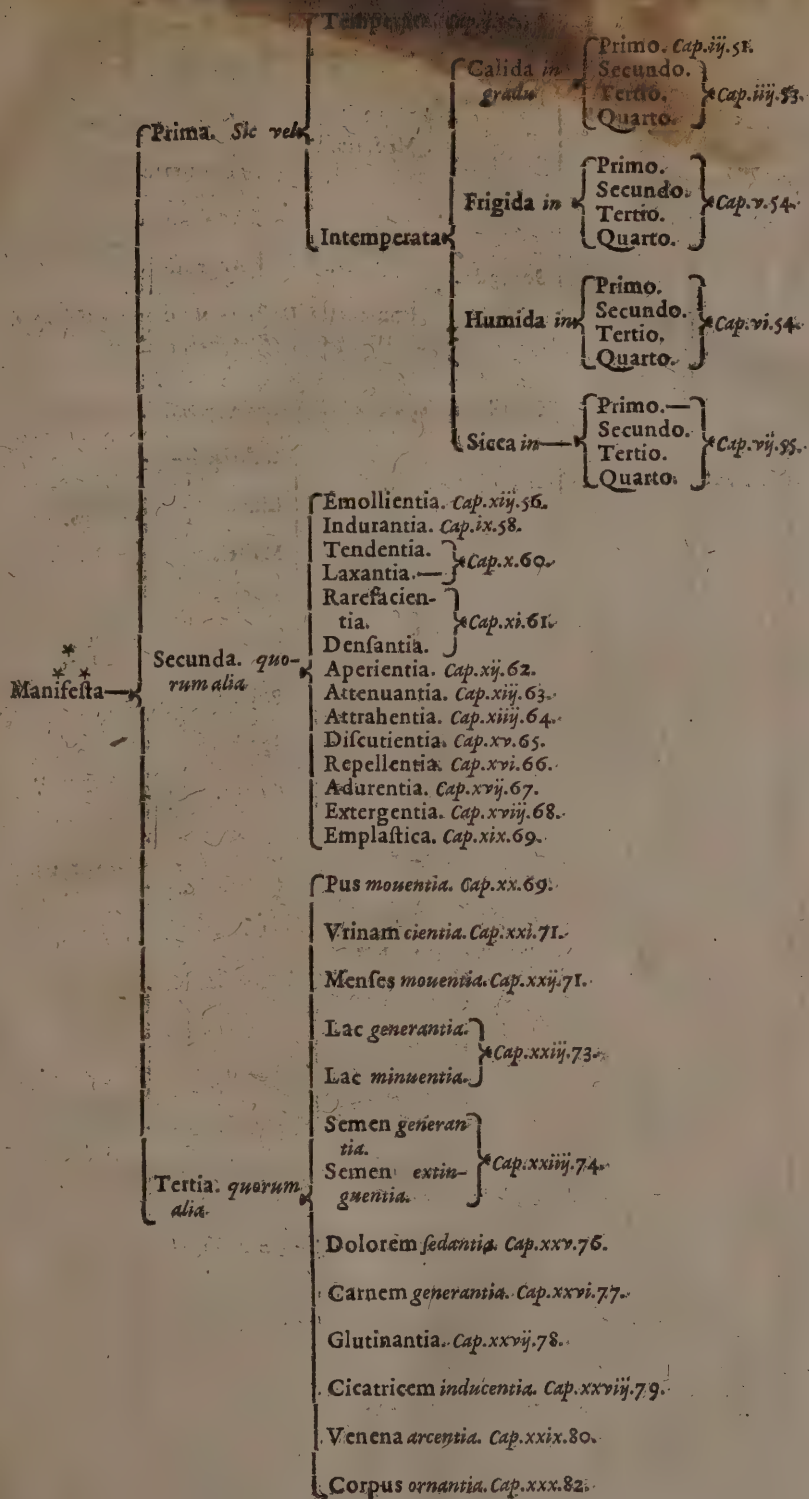 Temperata.
Primo. Cap.iij.51.
Calida in
gradu
Secundo.
Tertio.
Quarto.
Cap.iiij.53.
Prima. Sic vel
Intemperata
Frigida in
Primo.
Secundo.
Tertio.
Quarto.
Cap.v.54.
Humida in
Primo.
Secundo.
Tertio.
Quarto.
Cap.vi.54.
Sicca in
Primo.
Secundo.
Tertio.
Quarto.
Cap.vij.55.
Manifeſta
Secunda. quo-
rum alia
Emollientia. Cap.xiij.56.
Indurantia. Cap.ix.58.
Tendentia.
Laxantia.
Cap.x.60.
Rarefacien-
tia.
Denſantia.
Cap.xi.61.
Aperientia. Cap.xij.62.
Attenuantia. Cap.xiij.63.
Attrahentia. Cap.xiiij.64.
Diſcutientia. Cap.xv.65.
Repellentia. Cap.xvi.66.
Adurentia. Cap.xvij.67.
Extergentia. Cap.xviij.68.
Emplaſtica. Cap.xix.69.
Tertia. quorum
alia
Pus mouentia. Cap.xx.69.
Vrinam cientia. Cap.xxi.71.
Menſes mouentia. Cap.xxij.71.
Lac generantia.
Lac minuentia.
Cap.xxiij.73.
Semen generan
tia.
Semen extin-
guentia.
Cap.xxiiij.74.
Dolorem ſedantia. Cap.xxv.76.
Carnem generantia. Cap.xxvi.77.
Glutinantia. Cap.xxvij.78.
Cicatricem inducentia. Cap.xxviij.79.
Venena arcentia. Cap.xxix.80.
Corpus ornantia. Cap.xxx.82.